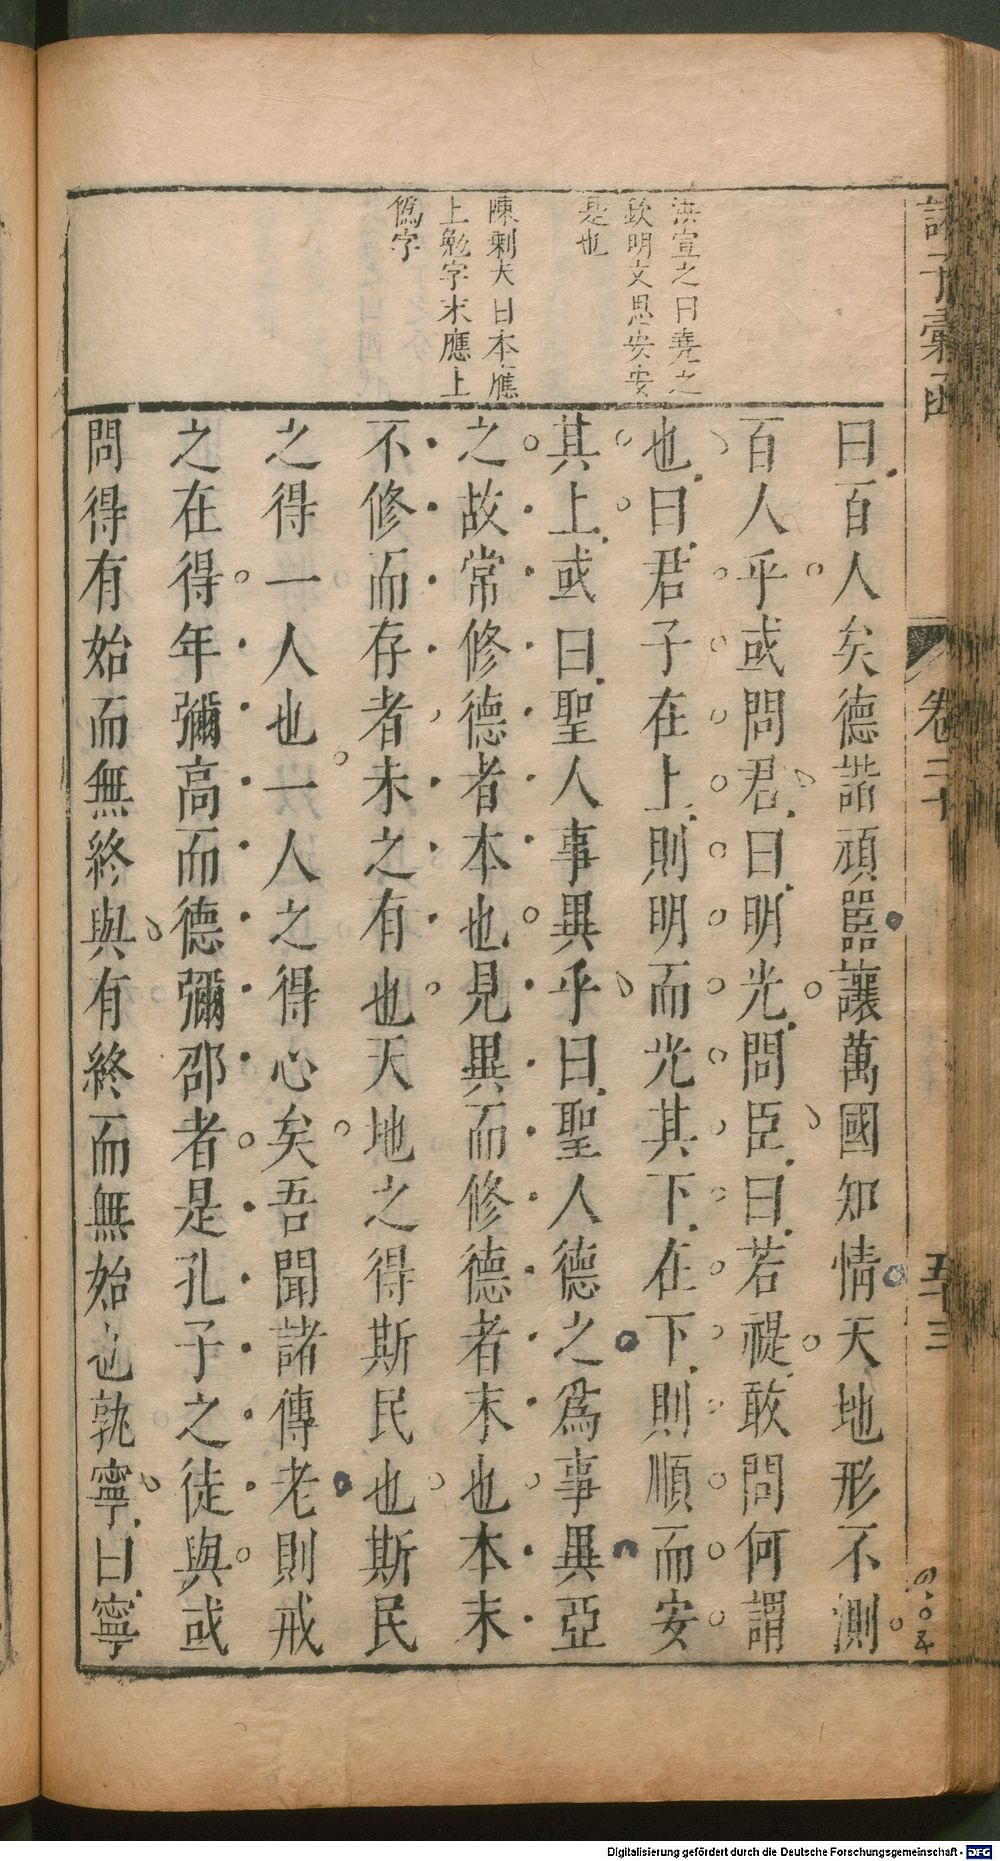 諸子彙函
卷二十
五十三
洪宣之曰堯之
欽明文思安安
是也
陳剩夫曰本應
上勉字末應上
僞字
曰百人矣德諧頑嚚讓萬國知情天地形不測
百人乎或問君曰明光問臣曰若禔敢問何謂
也曰君子在上則明而光其下在下則順而安
其上或曰聖人事異乎曰聖人德之爲事異亞
之故常修德者本也見異而修德者末也本末
不修而存者未之有也天地之得斯民也斯民
之得一人也一人之得心矣吾聞諸傳老則戒
之在得年彌高而德彌邵者是孔子之徒與或
問得有始而無終與有終而無始也孰寧曰寧
Digitalisierung gefördert durch die Deutsche Forschungsgemeinschaft - DFG